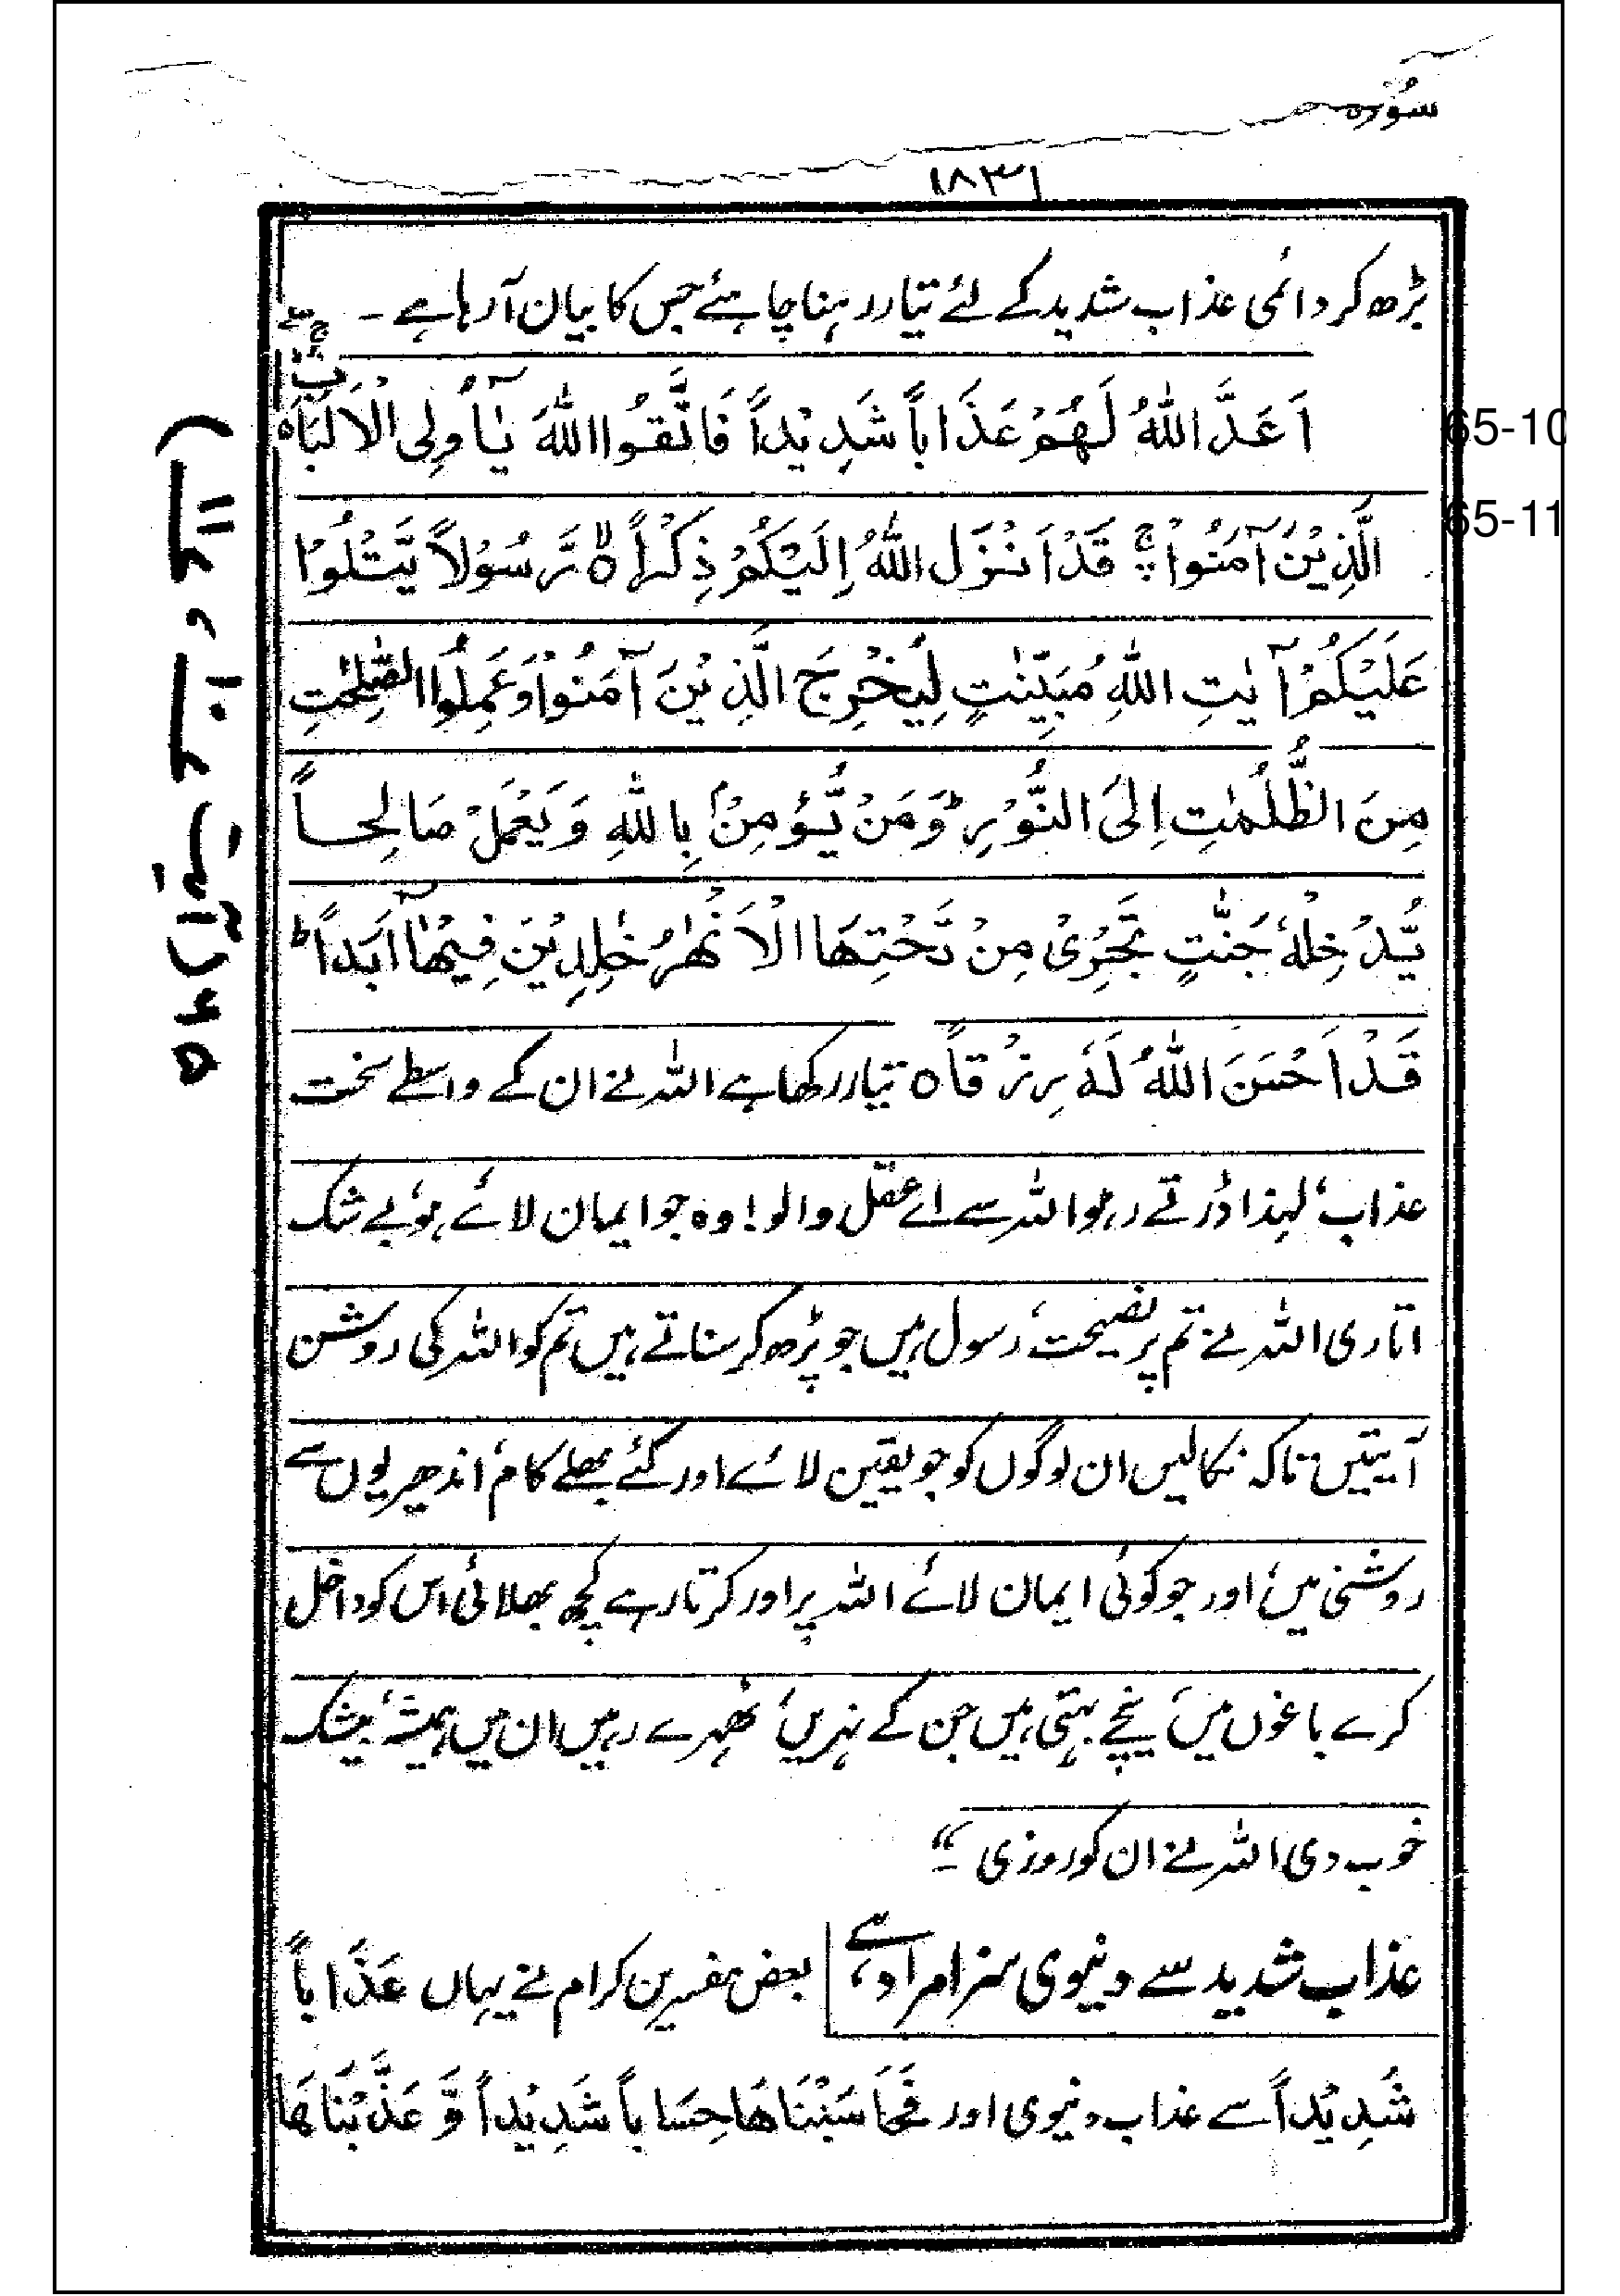 سُوْرہ
۱۸۳۱
بڑھ کر دائمی عذاب شدید کے لئے تیار رہنا چاہئے جس کا بیان آرہا ہے ۔
اَعَدَّ اللّٰهُ لَهُمْ عَذَاباً شَدِيْداً فَاتَّقُوا اللّٰهَ يٰاُولِى الْاَلْبَابِ
65-10
الَّذِيْنَ آمَنُوْا قَدْ اَنْزَلَ اللّٰهُ اِلَيْكُمْ ذِكْراً ۝ رَّسُوْلاً يَّتْلُوْا
65-11
عَلَيْكُمْ آيٰتِ اللّٰهِ مُبَيِّنٰتٍ لِيُخْرِجَ الَّذِيْنَ آمَنُوْا وَعَمِلُوا الصّٰلِحٰتِ
مِنَ الظُّلُمٰتِ اِلَى النُّوْرِ ؕ وَمَنْ يُّؤْمِنْ بِاللّٰهِ وَيَعْمَلْ صَالِحاً
يُّدْخِلْهُ جَنّٰتٍ تَجْرِىْ مِنْ تَحْتِهَا الْاَنْهٰرُ خٰلِدِيْنَ فِيْهَا اَبَداً ؕ
قَدْ اَحْسَنَ اللّٰهُ لَهٗ رِزْقاً ۝ تیار رکھا ہے اللہ نے ان کے واسطے سخت
عذاب، لہٰذا ڈرتے رہو اللہ سے اے عقل والو! وہ جو ایمان لائے ہو، بے شک
اتاری اللہ نے تم پر نصیحت، رسول ہیں جو پڑھ کر سناتے ہیں تم کو اللہ کی روشن
آیتیں تاکہ نکالیں ان لوگوں کو جو یقین لائے اور کئے بھلے کام، اندھیریوں سے
روشنی میں، اور جو کوئی ایمان لائے اللہ پر اور کرتا رہے کچھ بھلائی اس کو داخل
کرے باغوں میں، نیچے بہتی ہیں جن کے نہریں، ٹھہرے رہیں ان میں ہمیشہ، بیشک
خوب دی اللہ نے ان کو روزی ۔"
عذاب شدید سے دنیوی سزا مراد ہے، بعض مفسرین کرام نے یہاں عَذَاباً
شَدِيْداً سے عذاب دنیوی اور فَحَاسَبْنَاهَا حِسَاباً شَدِيْداً وَّ عَذَّبْنَاهَا